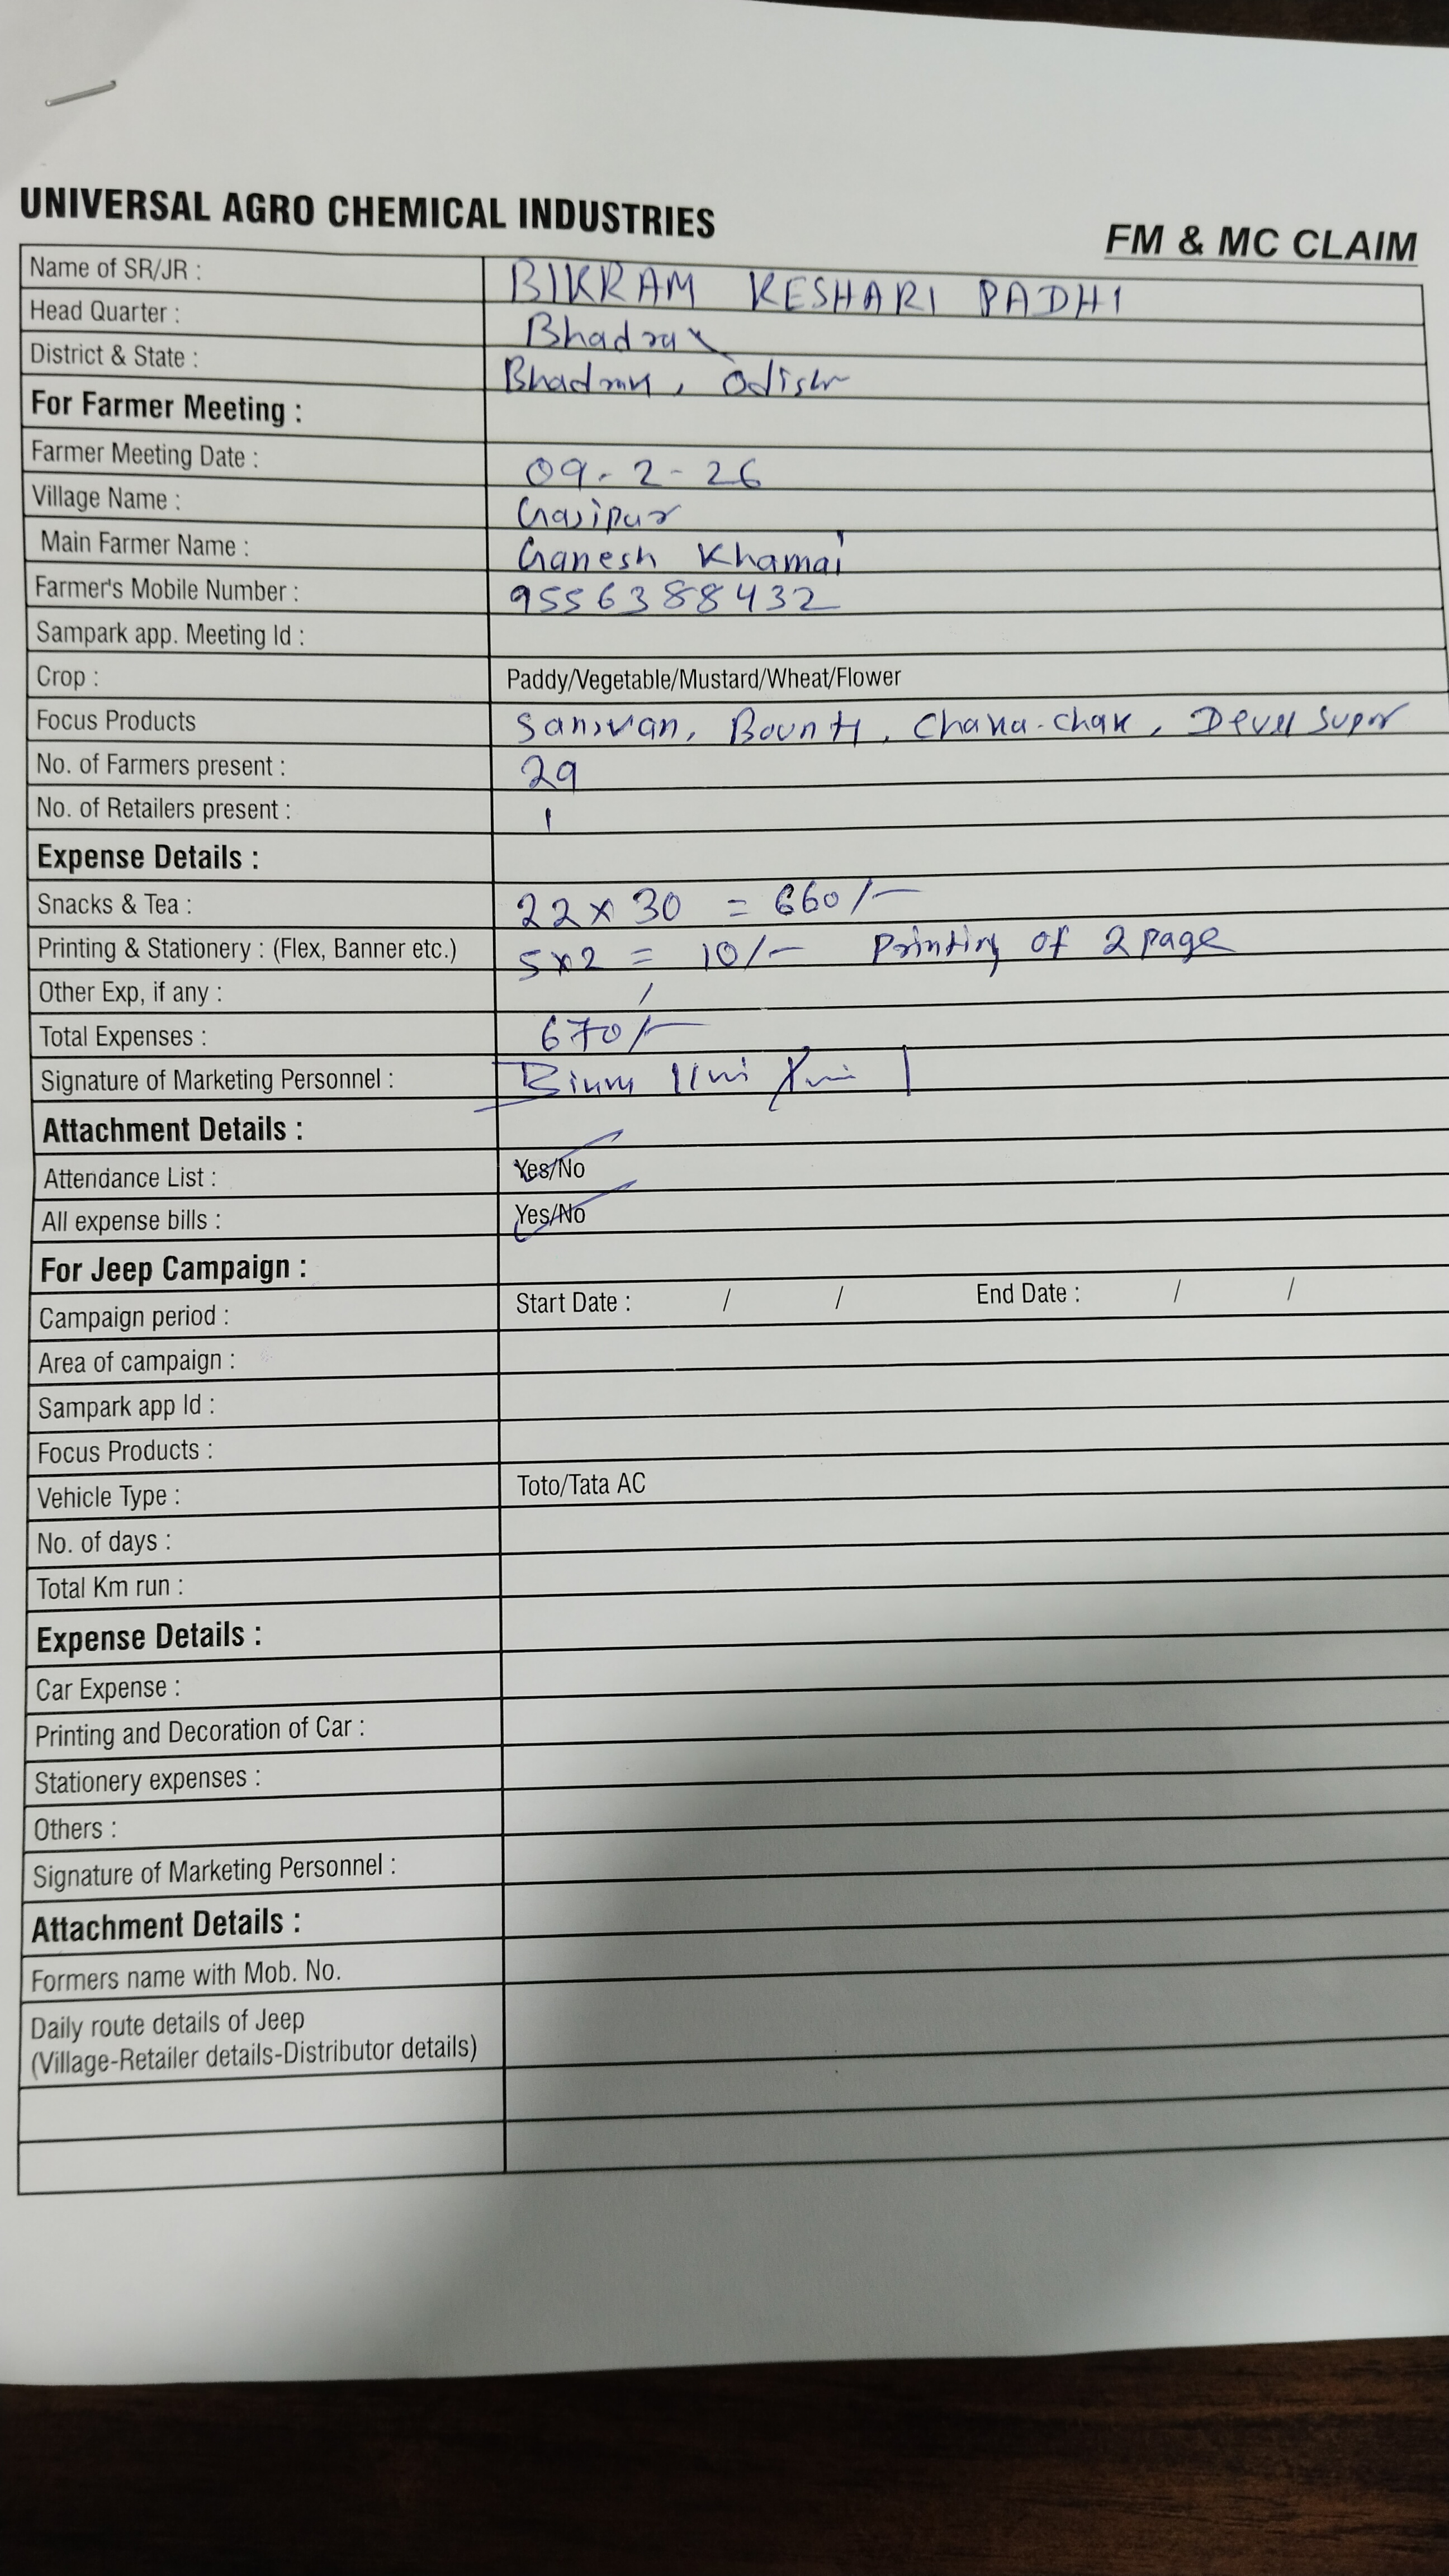 UNIVERSAL AGRO CHEMICAL INDUSTRIES
FM & MC CLAIM
Name of SR/JR : BIKRAM KESHARI PADHI
Head Quarter : Bhadrak
District & State : Bhadrak, Odisha
For Farmer Meeting :
Farmer Meeting Date : 09-2-26
Village Name :
Main Farmer Name : Ganesh Khamai
Farmer's Mobile Number : 9556388432
Sampark app. Meeting Id :
Crop : Paddy/Vegetable/Mustard/Wheat/Flower
Focus Products Chaka-chak,
No. of Farmers present : 29
No. of Retailers present : 1
Expense Details :
Snacks & Tea : 22 x 30 = 660/-
Printing & Stationery : (Flex, Banner etc.) 5x2 = 10/- Printing of 2 page
Other Exp, if any : /
Total Expenses : 670/-
Signature of Marketing Personnel :
Attachment Details :
Attendance List : Yes/No
All expense bills : Yes/No
For Jeep Campaign :
Campaign period : Start Date : / / End Date : / /
Area of campaign :
Sampark app Id :
Focus Products :
Vehicle Type : Toto/Tata AC
No. of days :
Total Km run :
Expense Details :
Car Expense :
Printing and Decoration of Car :
Stationery expenses :
Others :
Signature of Marketing Personnel :
Attachment Details :
Formers name with Mob. No.
Daily route details of Jeep
(Village-Retailer details-Distributor details)